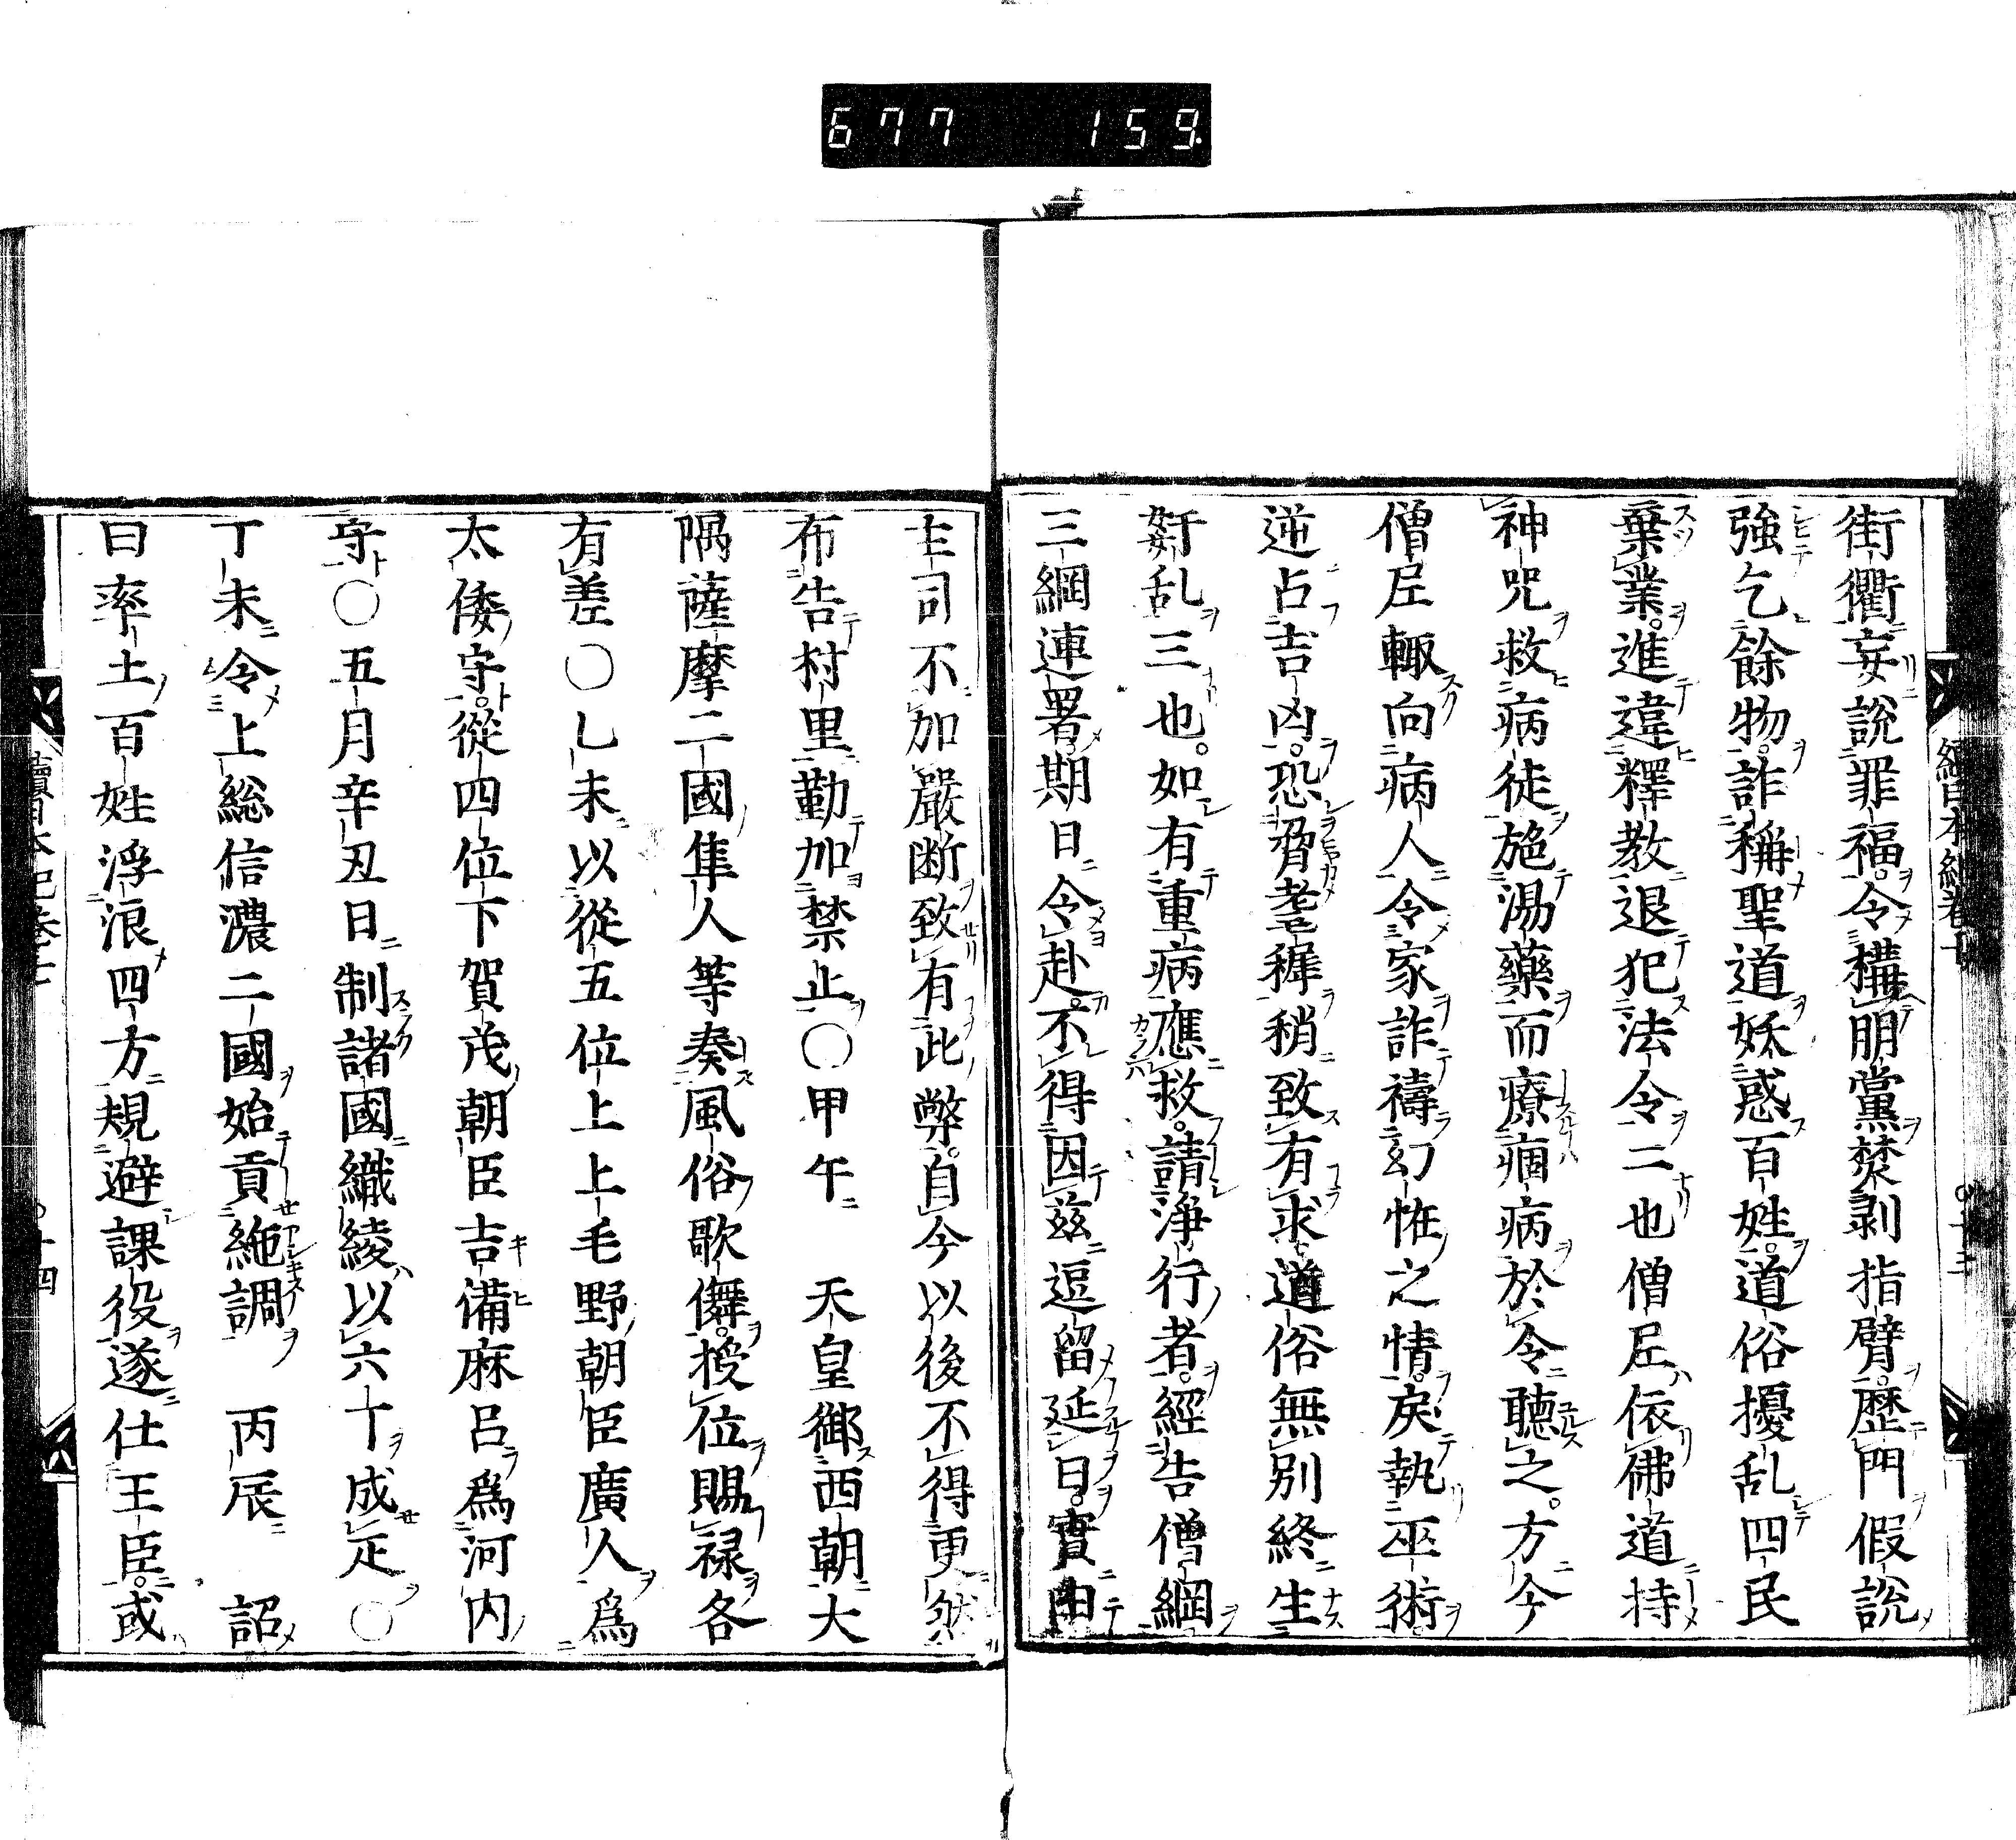 677 159
街衢妄說罪福。令構朋黨焚剥指臂。歷門假說
強乞餘物。詐稱聖道妖惑百姓。道俗擾乱四民
棄業。進違釋教退犯法令二也僧尼依佛道持
神咒救病徒施湯藥而療痼病於令聽之。方今
僧尼輙向病人令家詐禱幻恠之情。戾執巫術
逆占吉凶。恐脅耄穉稍致有求。道俗無別終生
奸乱三也。如有重病應救。請淨行者。經告僧綱
三綱連署期日令赴。不得因兹逗留延日。實由
主司不加嚴断致有此弊。自今以後不得更然
布告村里勤加禁止〇甲午 天皇御西朝大
隅薩摩二國隼人等奏風俗歌儛。授位賜禄各
有差〇乚未以從五位上上毛野朝臣廣人爲
太倭守。從四位下賀茂朝臣吉備麻呂爲河内
守〇五月辛丑日制諸國織綾以六十成疋〇
丁未令上総信濃二國始貢絁調 丙辰 詔
曰率土百姓浮浪四方規避課役遂仕王臣。或